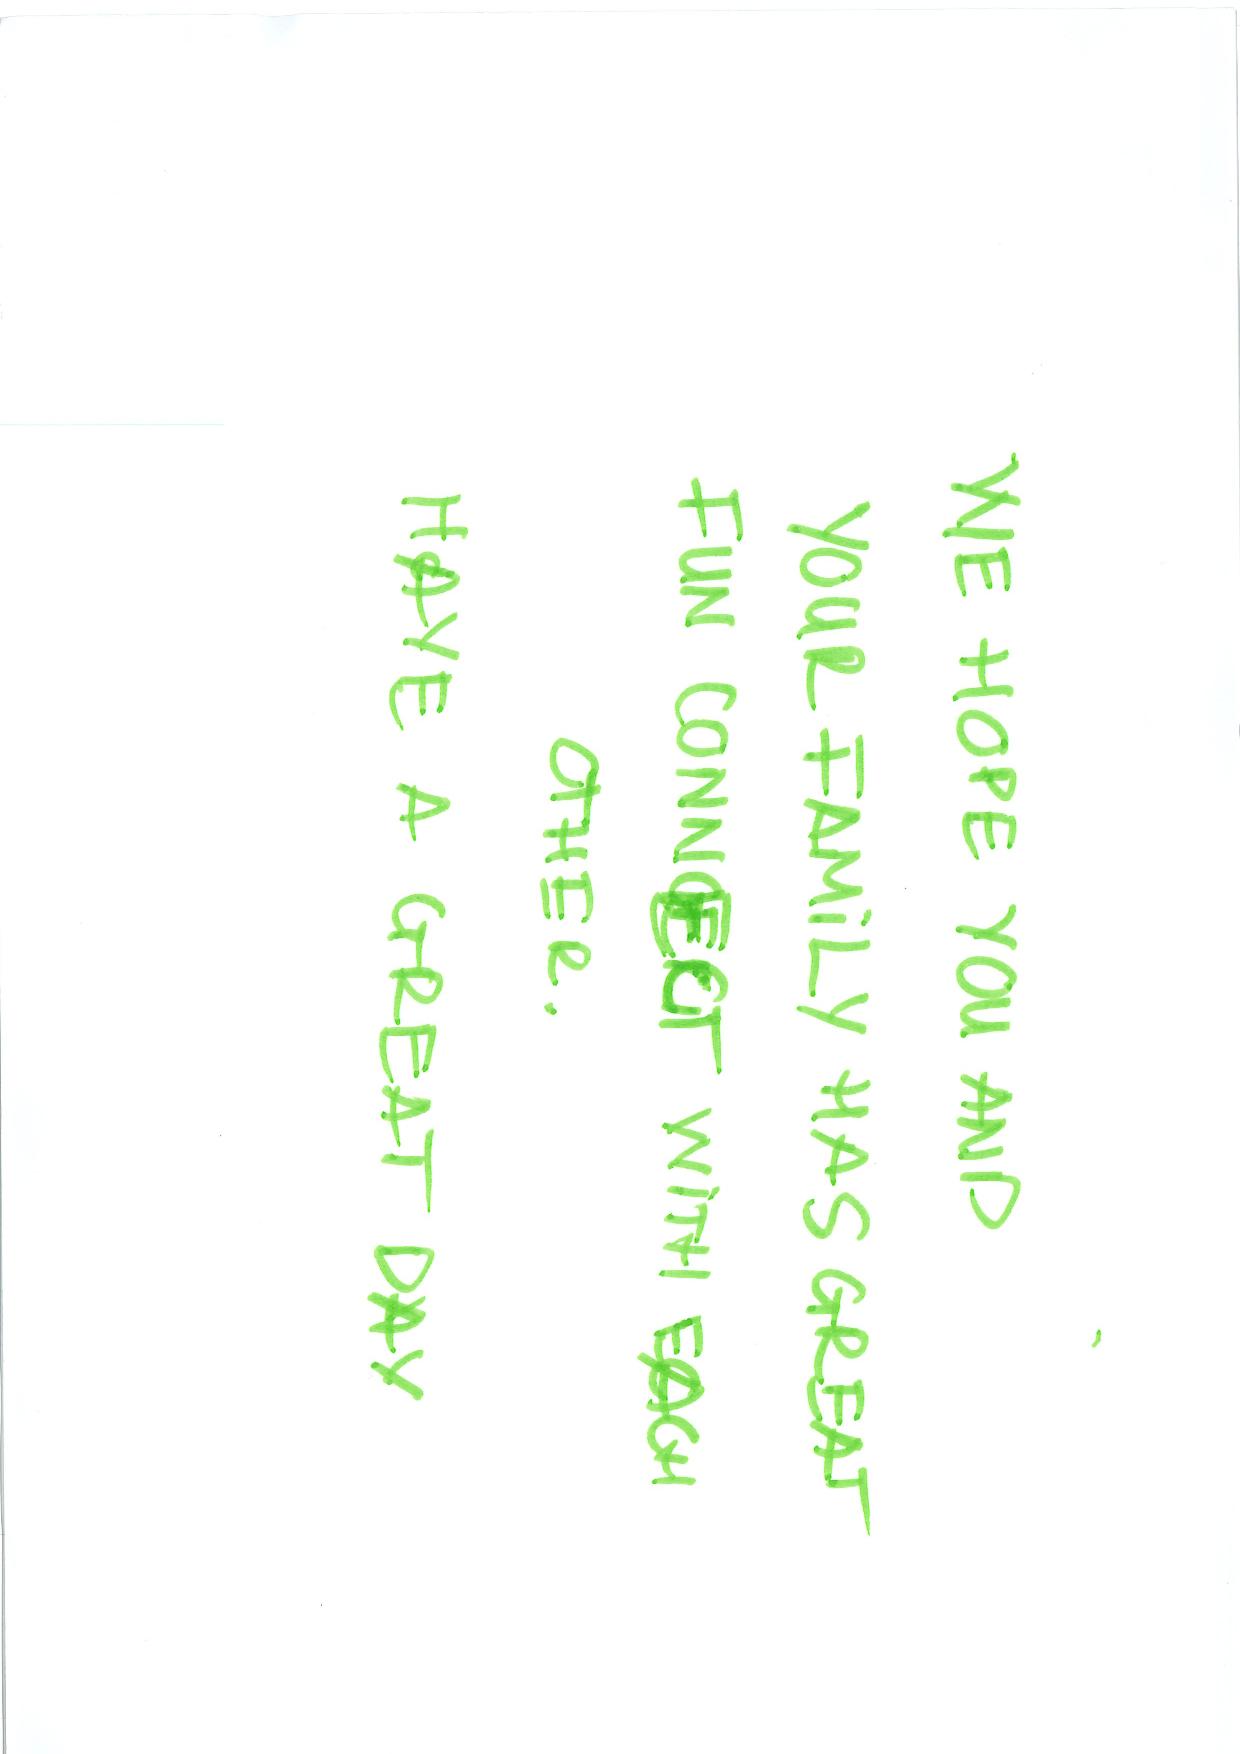 WE HOPE YOU AND
YOUR FAMiLY HAS GREAT
FUN CONNECT WiTH EACH
OTHER.
HAVE A GREAT DAY